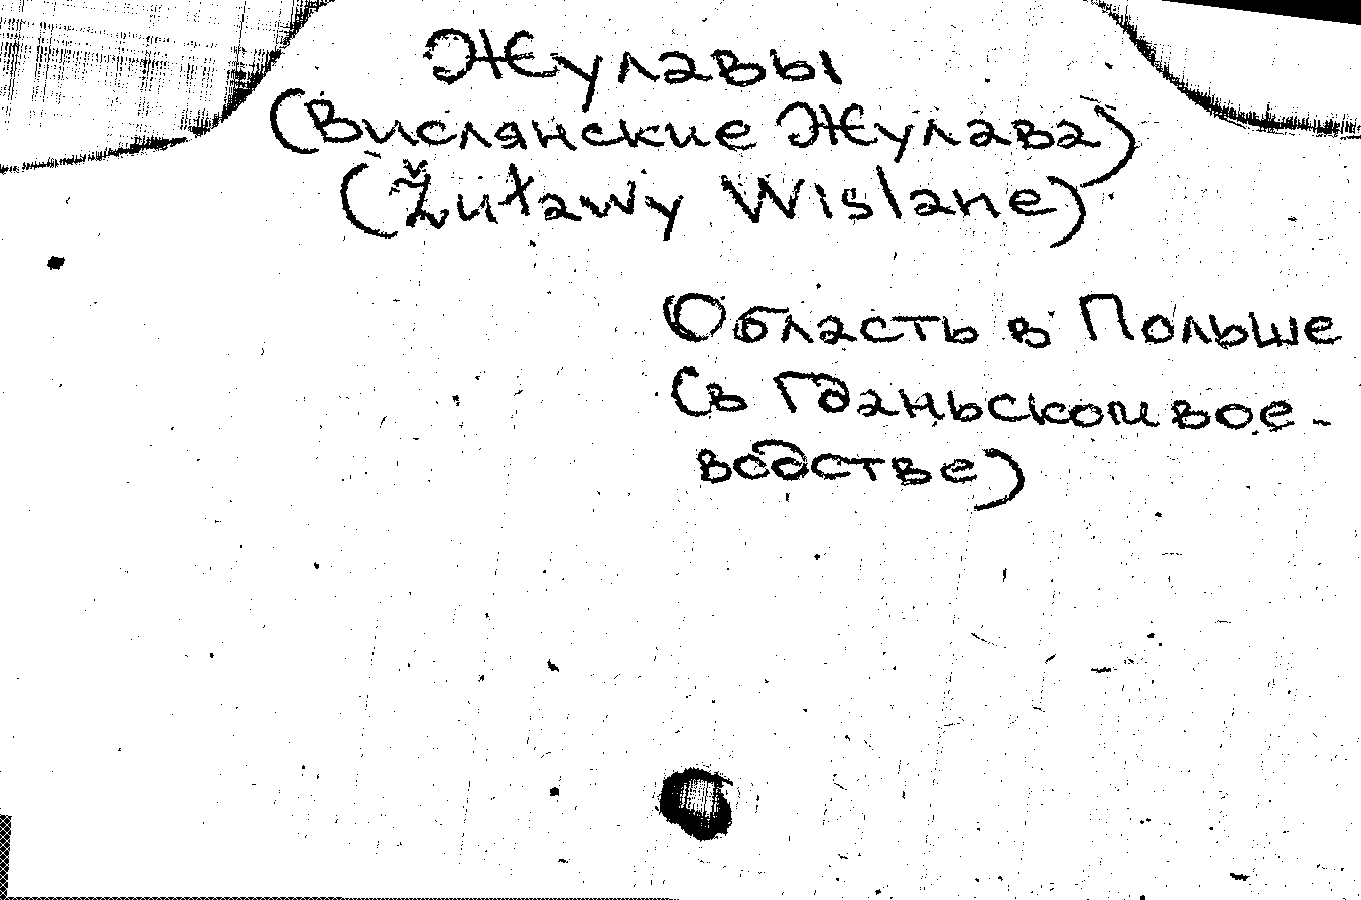 Жулавы
(Вислянские Жулава)
(Žuławy Wislane)
Область в Польше
(в Гданьском вое-
водстве)